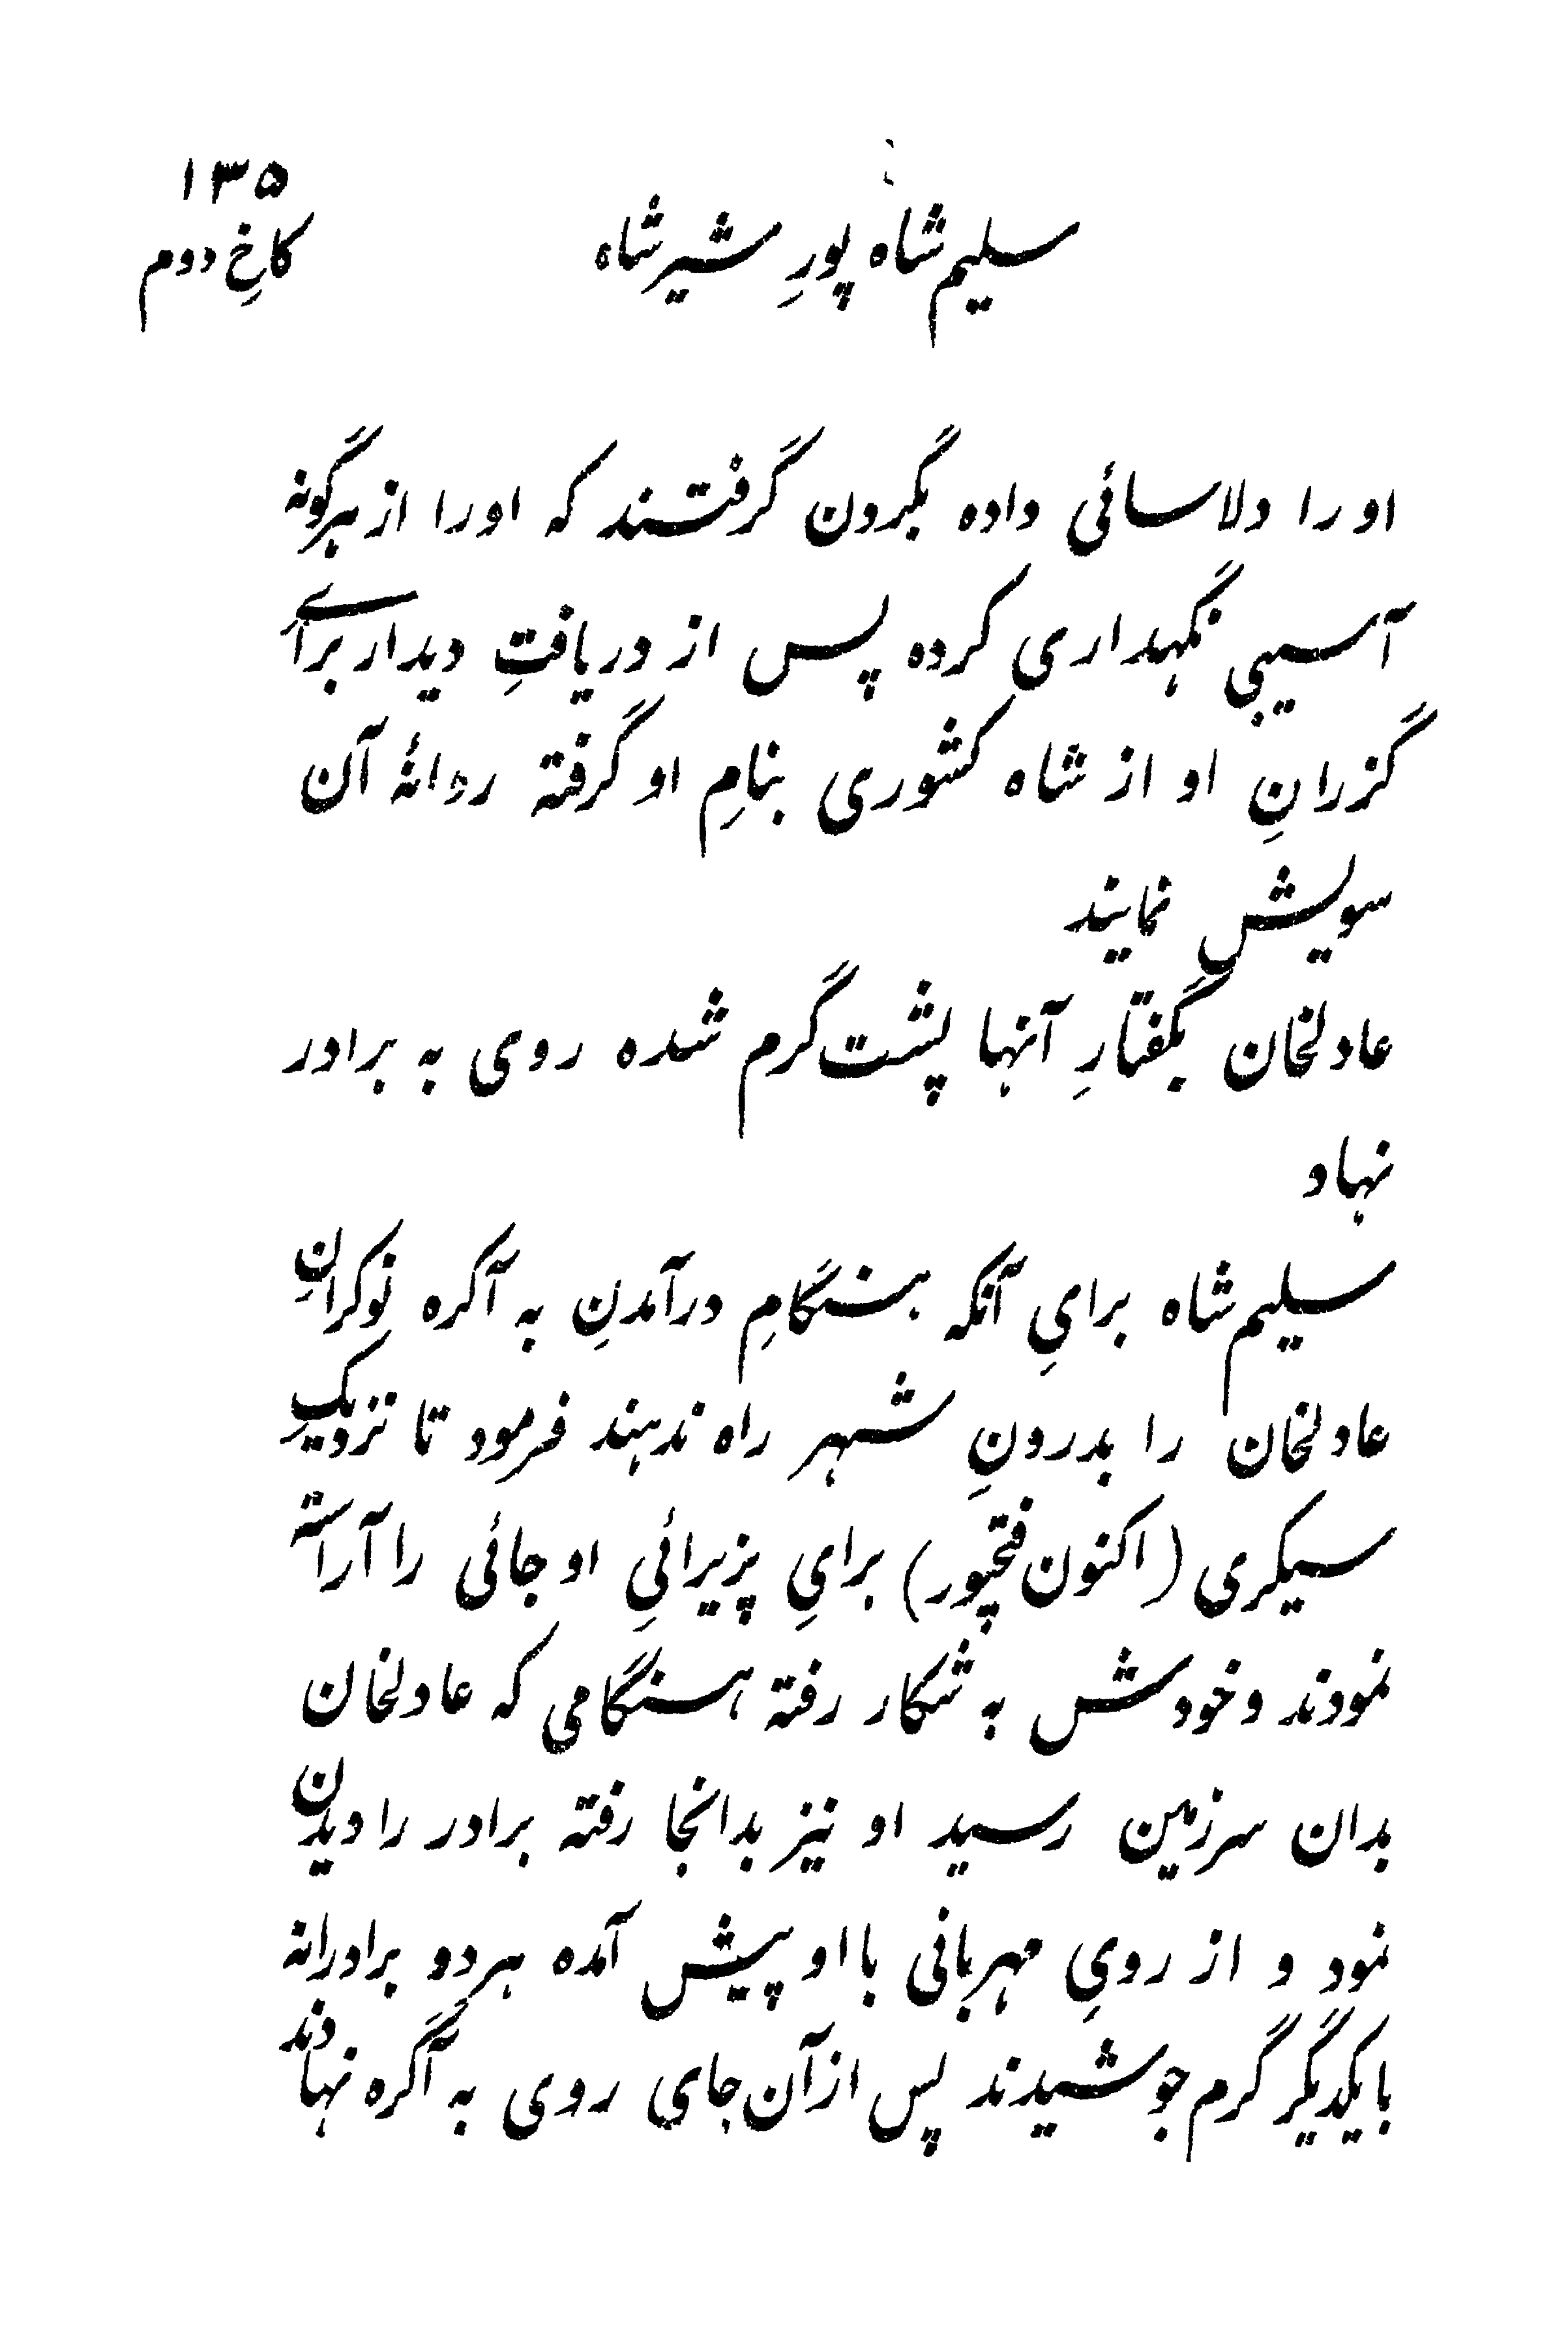 ۱۳۵
سلیم شاه پورِ شیر شاه
کاخِ دوم
او را دلاسائی داده بگردن گرفتند که اورا از هرگونه
آسیبی نگهداری کرده پس از دریافتِ دیدار برایِ
گزرانِ او از شاه کشوری بنامِ او گرفته روانهٔ آن
سویش نمایند
عادلخان بگفتارِ آنها پشت گرم شده روی به برادر
نهاد
سلیم شاه برایِ آنکه هنگامِ درآمدنِ به آگره نوکرانِ
عادلخان را بدرونِ شهر راه ندهند فرمود تا نزدیکِ
سیکری (اکنون فتحپور) برایِ پزیرائیِ او جائی را آراسته
نمودند و خودش به شکار رفته هنگامی که عادلخان
بدان سرزمین رسید او نیز بدانجا رفته برادر را دیدن
نمود و از رویِ مهربانی با او پیش آمده هر دو برادرانه
بایکدیگر گرم جوشیدند پس از آن جای روی به آگره نهادند